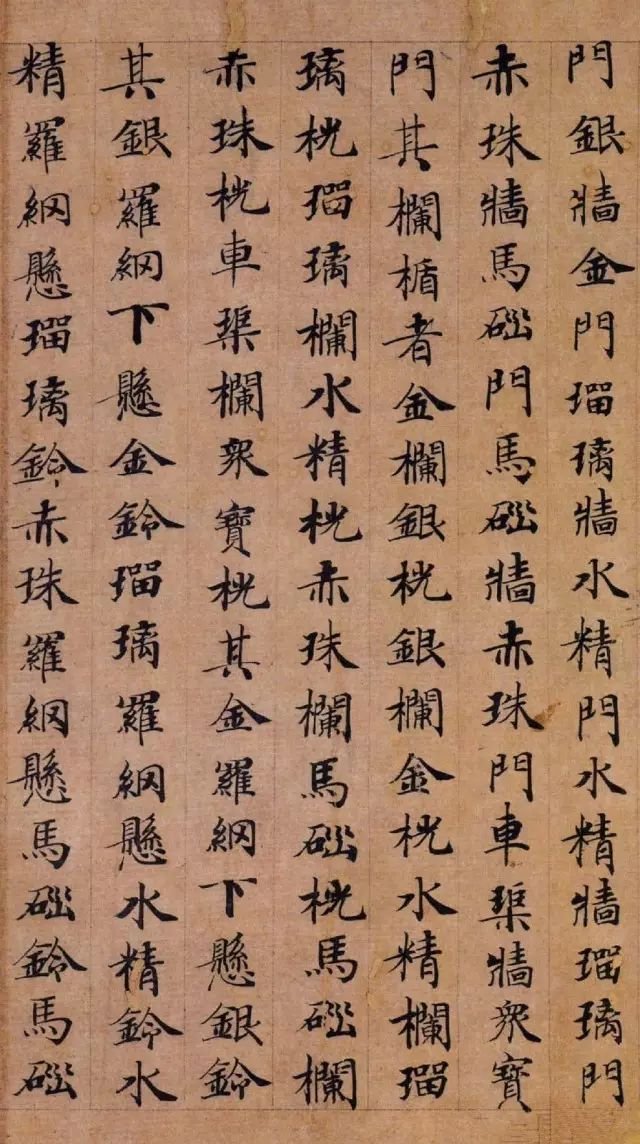 門銀牆金門瑠璃牆水精門水精牆瑠璃門
赤珠牆馬碯門馬碯牆赤珠門車璖牆衆寶
門其欄楯者金欄銀桄銀欄金桄水精欄瑠
璃桄瑠璃欄水精桄赤珠欄馬碯桄馬碯欄
赤珠桄車璖欄衆寶桄其金羅網下懸銀鈴
其銀羅網下懸金鈴瑠璃羅網懸水精鈴水
精羅網懸瑠璃鈴赤珠羅網懸馬碯鈴馬碯